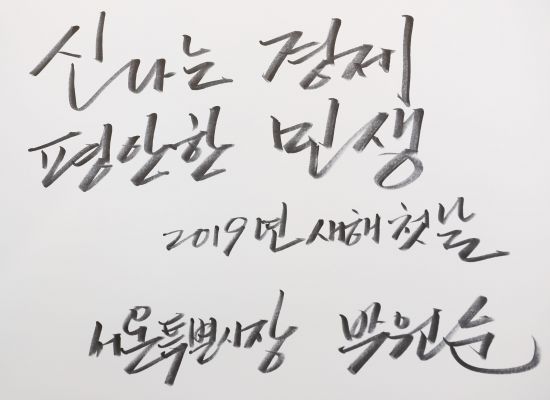 신나는 경제
평안한 민생
2019년 새해 첫날
서울특별시장 박원순